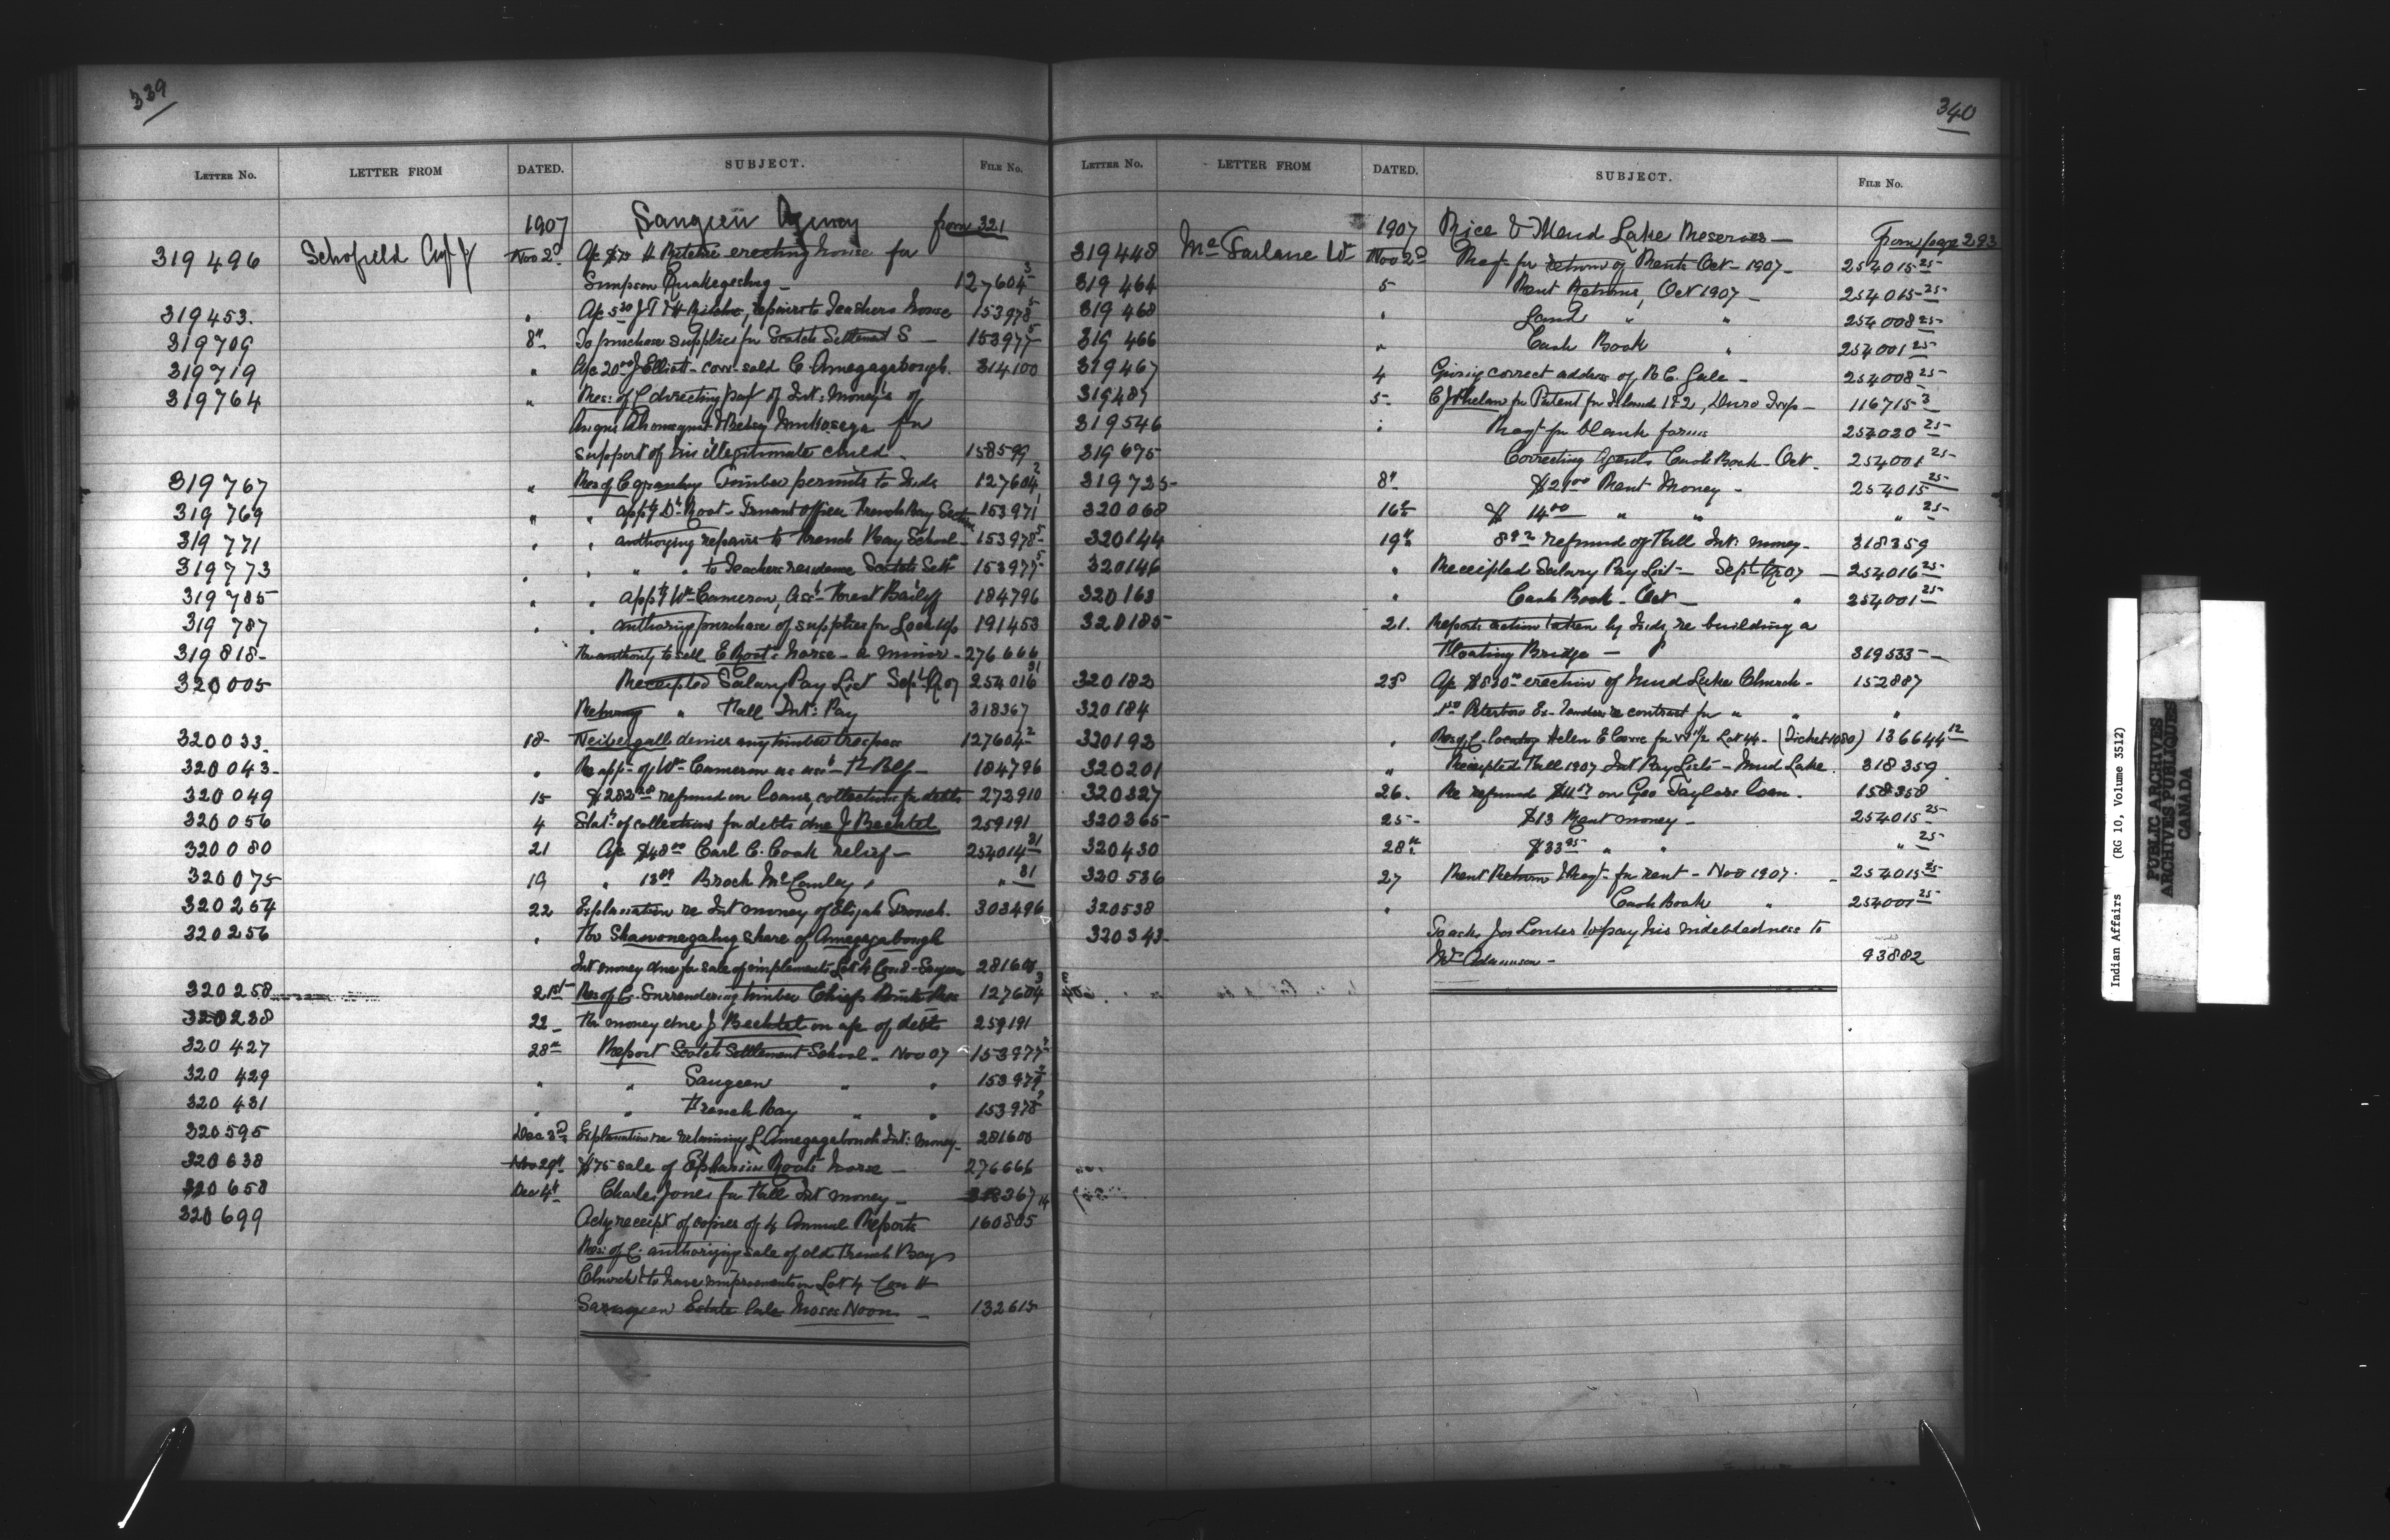 339
LETTER No. LETTER FROM DATED. SUBJECT. FILE No.
1907 Saugeen Agency from 321
319496 Schofield Nov 2d A/c $75 H Ritchie erecting house for
Simpson Quakegeshig - 127604 3
319453. " A/c 5.30 J T & H , repairs to Teachers house 153978 5
319709 8" To purchase supplies for Scotch Settlement S - 153977 5
319719 " A/c 20.00 J Elliott - cow sold C. Amegagabough. 314100
319764 " Res: of C directing part of Int: money's of
Angus & for
support of his illegitimate child. 158599
319767 " Res of C granting Timber permits to Inds 127604 2
319769 " " app't D. Root - Truant officer French Bay Section 153971 1
319771 " " authorizing repairs to French Bay School - 153978 5
319773 " " " to Teachers residence Scotch Sett 153977 5
319785 " " app't Wm Cameron, Ass't Forest Bailiff 184796
319787 " " authorizing purchase of supplies for Lockup 191453
319818- For authority to sell E Root's horse - a minor - 276666
320005 Receipted Salary Pay List Sept Qr 07 254016 31
Returning " Fall Int: Pay 318367
320033. 18- Neibergall denies any timber trespass 127604 2
320043- " Re app't of Wm Cameron as ass't 184796
320049 15 refund on loans, collections for debts 273910
320056 4 Stat: of collections for debts due J Bechtel 259191
320080 21 A/c $48.00 Carl C. Cook relief - 254014 31
320075 19 " Brock McCauley " " 31
320264 22 Explanation re Int money of Elijah French. 303496
320256 " For share of Amegagabough
Int money due for sale of implements Lot 4 Con 8 - Saugeen 281600
320258 21st Res of C. Surrendering timber Chief's Point Res 127604 3
320238 22 - For money due J Bechtel on a/c of debts 259191
320427 28" Report Scotch Settlement School - Nov 07 153977
320429 " " Saugeen " " 153979
320431 " " French Bay " " 153978
320595 Dec 3d Explanation re retaining L Amegagabough Int: money - 281600
320638 Nov 29" $75 sale of Ephraim Root's horse - 276666
320658 Dec 4th Charles Jones for Fall Int money - 318367 14
320699 Ackg receipt of copies of 4 Annual Reports 160805
Res: of C. authorizing sale of old French Bay
Church & to have improvements on Lot 4 Con 11
Saugeen Estate late Moses Noon - 132615
340
LETTER No. LETTER FROM DATED. SUBJECT. FILE No.
1907 Rice & Mud Lake Reserves - From page 293
319448 McFarlane W Nov 2d Req't for return of Rents Oct - 1907 - 254015 25
319464 5 Rent Returns, Oct 1907 - 254015 25
319468 " Land " " 254008 25
319466 " Cash Book " 254001 25
319467 4 Giving correct address of R C. Gale - 254008 25
319487 5- C J Phelan for Patent for Islands 1 & 2, Duro Twp - 116715 3
319546 " Req't for blank forms 254020 25
319675 Correcting Agents Cash Book - Oct - 254001 25
319725- 8" $21.00 Rent Money - 254015 25
320068 16" $ 14.00 " " " 25
320144 19" refund of Fall Int: money - 318359
320146 " Receipted Salary Pay List - Sept Qr 07 - 254016 25
320163 " Cash Book - Oct - " 254001 25
320185 21. Reports action taken by Inds, re building a
Floating Bridge - 319533 -
320182 23d A/c erection of Mud Lake Church - 152887
320184 Peterboro Ex - Tenders re contract for " " "
320193 " Res of C - locating Helen E for W 1/2 Lot 44 - (Ticket 1080) 136644 12
320201 " Receipted Fall 1907 Int Pay Lists - Mud Lake. 318359
320327 26. Re refund on Geo Taylors loan. 158358
320365 25- $13 Rent money - 254015 25
320430 28" " " " 25
320536 27 Rent Return & Req't for rent - Nov 1907. - 254015 25
320538 " Cash Book " 254001 25
320343- To ask Jos to pay his indebtedness to
Mr Adamson - 93882
Indian Affairs (RG 10, Volume 3512)
PUBLIC ARCHIVES
ARCHIVES PUBLIQUES
CANADA